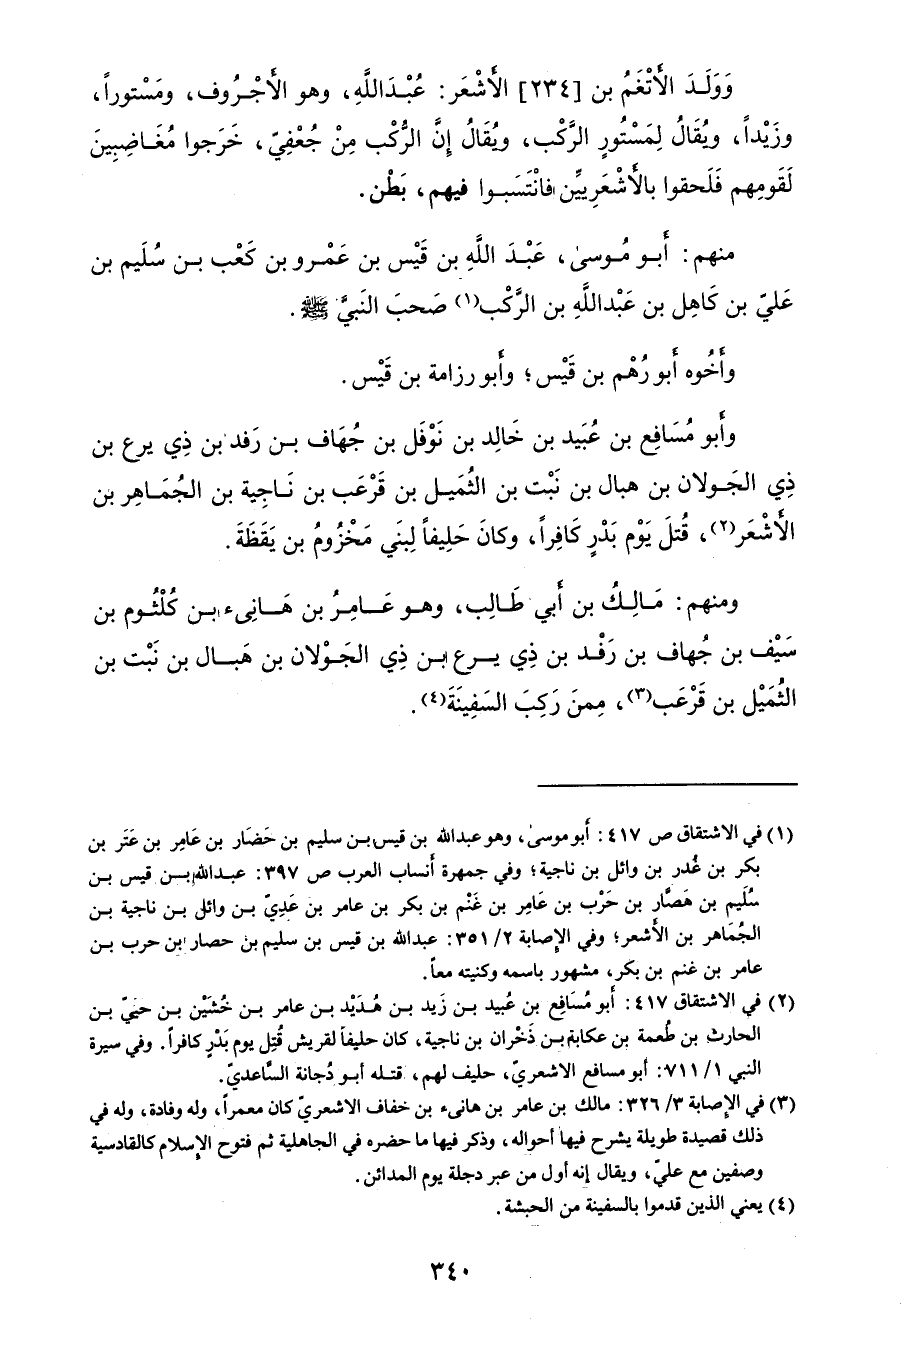 وَوَلَدَ الأَتْغَمُ بن [٢٣٤] الأَشْعَر: عُبْدَاللَّهِ، وهو الأَجْروف، ومَسْتوراً،
وزَيْداً، ويُقَالُ لِمَسْتُورٍ الرَّكْب، ويُقَالُ إنَّ الرُّكْب مِنْ جُعْفِيّ، خَرَجوا مُغَاضِبِينَ
لَقَومِهم فَلَحقوا بالأَشْعَرِيِّين فانْتَسَبوا فيهم، بَطْن.
منهم: أَبو مُوسىٰ، عَبْدَ اللَّهِ بن قَيْس بن عَمْرو بن كَعْب بن سُلَيم بن
عَليّ بن كَاهِل بن عَبْداللَّهِ بن الرَّكْب(١) صَحبَ النَبيَّ ﷺ.
وأَخُوه أَبو رُهْم بن قَيْس؛ وأَبو رزامة بن قَيْس.
وأَبو مُسَافِع بن عُبَيد بن خَالِد بن نَوْفَل بن جُهَاف بن رَفد بن ذِي يرع بن
ذِي الجَولان بن هبال بن نَبْت بن الثُمَيل بن قَرْعَب بن نَاجِية بن الجُمَاهِر بن
الأَشْعَر(٢)، قُتلَ يَوْم بَدْرٍ كَافِراً، وكانَ حَلِيفاً لِبنَي مَخْزُومُ بن يَقَظَةَ.
ومنهم: مَالِكُ بن أَبي طَالِب، وهو عَامِرُ بن هَانِىء بن كُلْثُوم بن
سَيْف بن جُهاف بن رَفْد بن ذِي يرع بن ذي الجَوْلان بن هَبال بن نَبْت بن
الثُمَيْل بن قَرْعَب(٣)، مِمنَ رَكِبَ السَفِينَةَ(٤).
(١) في الاشتقاق ص ٤١٧: أبو موسىٰ، وهو عبدالله بن قيس بن سليم بن حَضَار بن عَامِر بن عَتَر بن
بكر بن غُدر بن وائل بن ناجية؛ وفي جمهرة أنساب العرب ص ٣٩٧: عبدالله بن قيس بن
سُلَيم بن هَصَّار بن حَرْب بن عَامِر بن غَنْم بن بكر بن عامر بن عَدِيّ بن وائل بن ناجية بن
الجُمَاهر بن الأشعر؛ وفي الإصابة ٢/ ٣٥١: عبدالله بن قيس بن سليم بن حصار بن حرب بن
عامر بن غنم بن بكر، مشهور باسمه وكنيته معاً.
(٢) في الاشتقاق ٤١٧: أبو مُسَافِع بن عُبيد بن زَيد بن هُدَيْد بن عامر بن خُشَيْن بن حيَيّ بن
الحارث بن طُعمة بن عكابة بن ذَخْران بن ناجية، كان حليفاً لقريش قُتِل يوم بَدْرٍ كافراً. وفي سيرة
النبي ١/ ٧١١: أبو مسافع الاشعريّ، حليف لهم، قتله أبو دُجانة السَّاعديّ.
(٣) في الإصابة ٣/ ٣٢٦: مالك بن عامر بن هانىء بن خفاف الاشعريّ كان معمراً، وله وفادة، وله في
ذلك قصيدة طويلة يشرح فيها أحواله، وذكر فيها ما حضره في الجاهلية ثم فتوح الإسلام كالقادسية
وصفين مع عليّ، ويقال إنه أول من عبر دجلة يوم المدائن.
(٤) يعني الذين قدموا بالسفينة من الحبشة.
٣٤٠